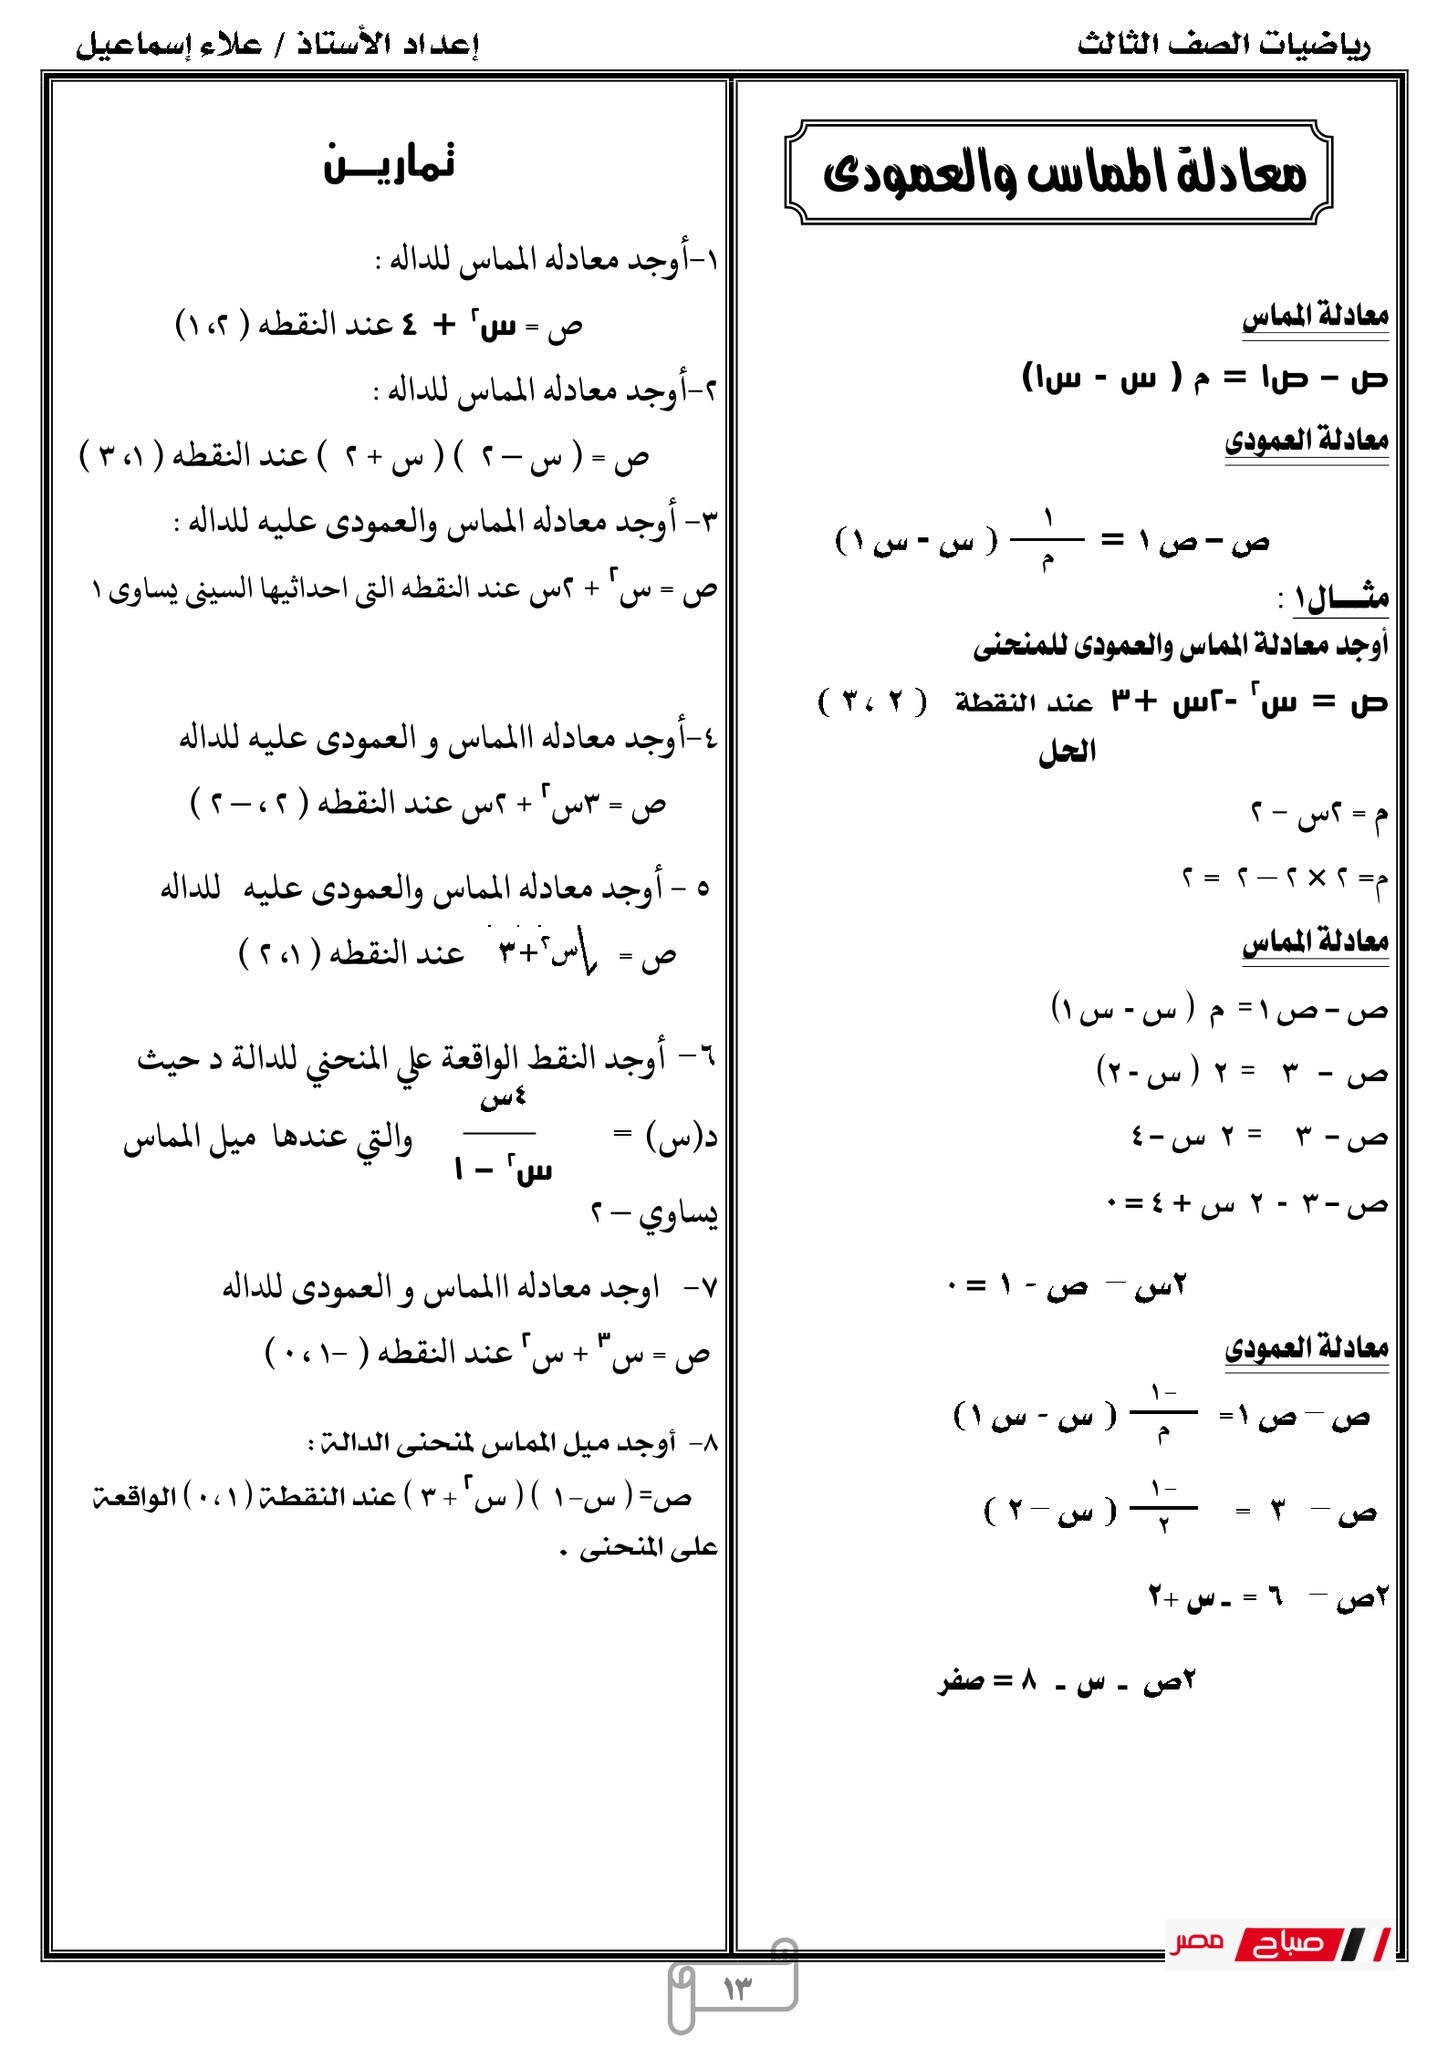 رياضيات الصف الثالث
إعداد الأستاذ / علاء إسماعيل
معادلة المماس والعمودى
معادلة المماس
ص – ص١ = م ( س - س١)
معادلة العمودى
ص – ص ١ = ١/م ( س - س ١)
مثــــال١ :
أوجد معادلة المماس والعمودى للمنحنى
ص = س٢ -٢س +٣ عند النقطة ( ٢ ، ٣ )
الحل
م = ٢س – ٢
م= ٢ × ٢ – ٢ = ٢
معادلة المماس
ص – ص ١= م ( س - س ١)
ص – ٣ = ٢ ( س - ٢)
ص – ٣ = ٢ س – ٤
ص – ٣ - ٢ س + ٤ = ٠
٢س – ص - ١ = ٠
معادلة العمودى
ص – ص ١= –١/م ( س - س ١)
ص – ٣ = –١/٢ ( س – ٢ )
٢ص – ٦ = ـ س +٢
٢ص ـ س ـ ٨ = صفر
تماريـــن
١-أوجد معادله المماس للداله :
ص = س٢ + ٤ عند النقطه ( ٢، ١)
٢-أوجد معادله المماس للداله :
ص = ( س – ٢ ) ( س + ٢ ) عند النقطه ( ١، ٣ )
٣- أوجد معادله المماس والعمودى عليه للداله :
ص = س٢ + ٢س عند النقطه التى احداثيها السينى يساوى ١
٤-أوجد معادله االمماس و العمودى عليه للداله
ص = ٣س٢ + ٢س عند النقطه ( ٢ ، – ٢ )
٥ - أوجد معادله المماس والعمودى عليه للداله
ص = √س٢+٣ عند النقطه ( ١، ٢ )
٦- أوجد النقط الواقعة علي المنحني للدالة د حيث
د(س) = ٤س/س٢ – ١ والتي عندها ميل المماس
يساوي – ٢
٧- اوجد معادله االمماس و العمودى للداله
ص = س٣ + س٢ عند النقطه ( –١ ، ٠ )
٨- أوجد ميل المماس لمنحنى الدالة :
ص= ( س–١ ) ( س٢ + ٣ ) عند النقطة ( ١ ،٠ ) الواقعة
على المنحنى .
صباح مصر
١٣